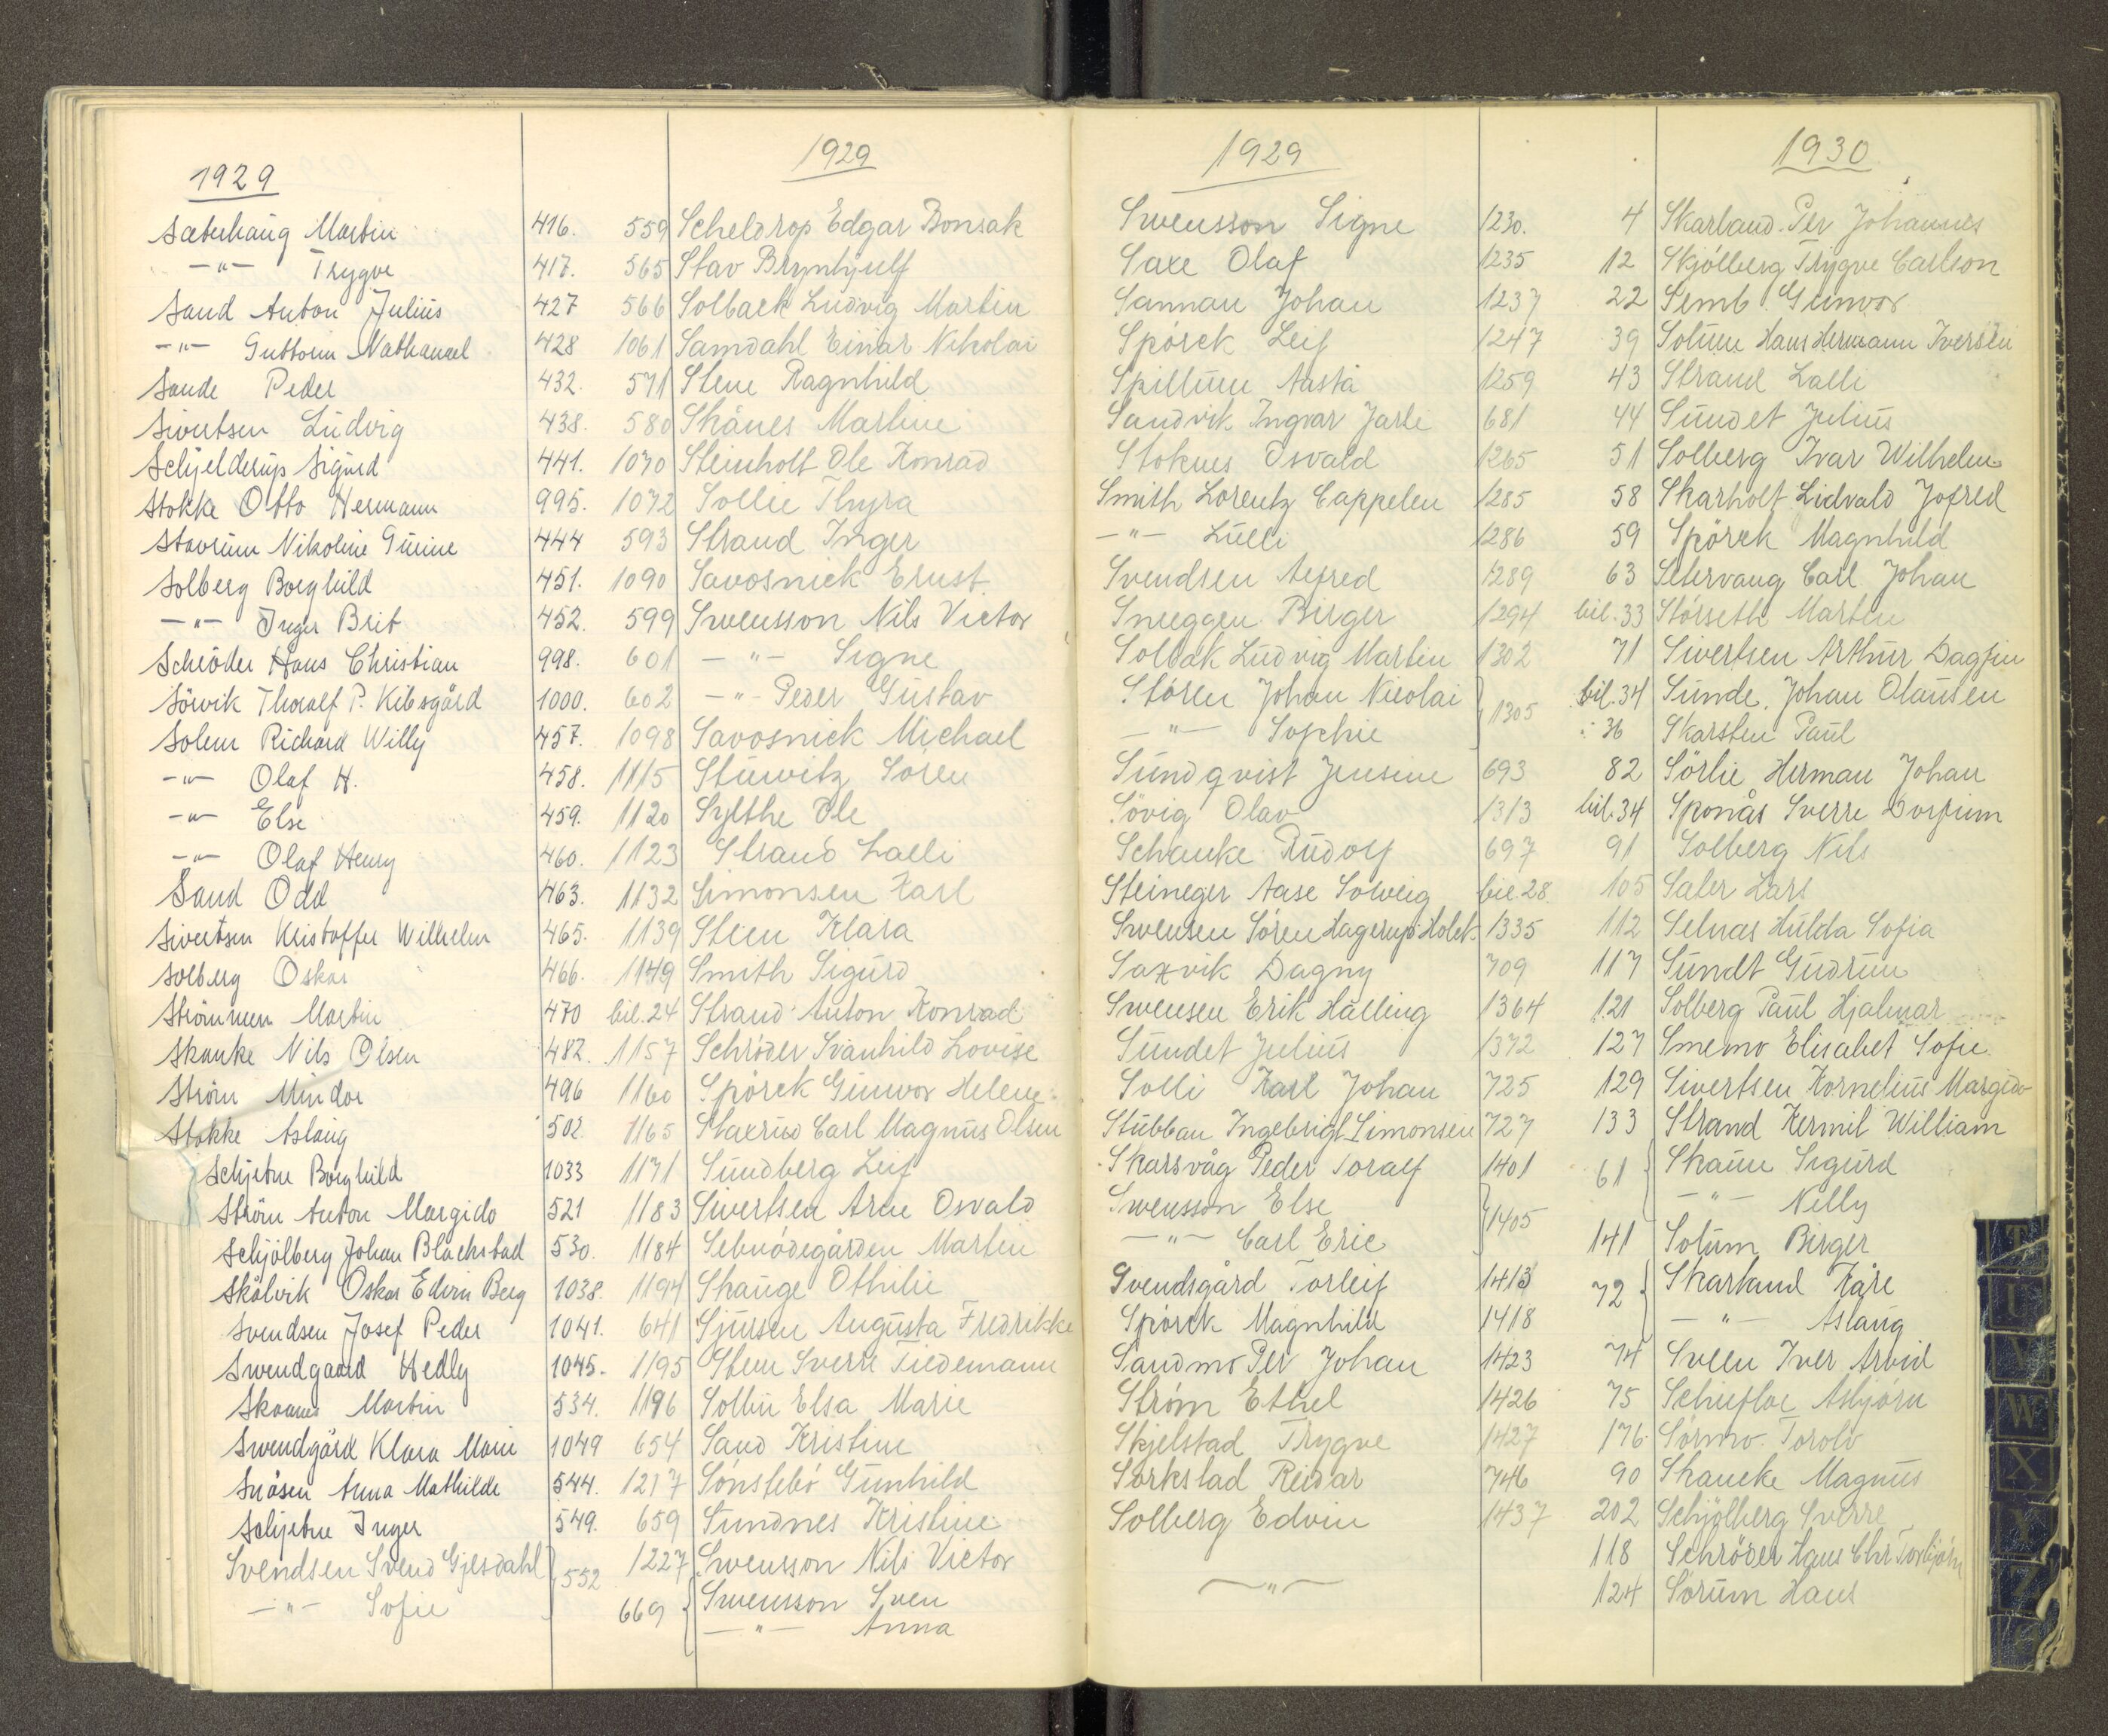 1929
Sæterhaug Martin 416.
-"- Trygve 417.
Sand Anton Julius 427
-"- Guttorm Nathanael 428
Sande Peder 432.
Sivertsen Ludvig 438.
Schjelderup Sigurd 441.
Stokke Otto Hermann 995.
Stavrum Nikoline Gurine 444
Solberg Borghild 451.
-"- Inger Brit 452.
Schröder Hans Christian 998.
Sörvik Thoralf P. Kibsgård 1000.
Solem Richard Willy 457.
-"- Olaf H. 458.
-"- Else 459.
-"- Olaf Henry 460.
Sand Odd 463.
Sivertsen Kristoffer Wilhelm 465.
Solberg Oskar 466.
Strömmen Martin 470
Skanke Nils Olsen 482.
Ström Mindor 496
Stokke Aslaug 502.
Schjetne Borghild 1033
Ström Anton Margido 521
Schjölberg Johan Blackstad 530.
Skålvik Oskar Edvin Berg 1038.
Svendsen Josef Peder 1041.
Swendgaard Hedly 1045.
Skaanes Martin 534.
Swendgård Klara Marie 1049
Snåsen Anna Mathilde 544.
Schjetne Inger 549.
Svendsen Svend Gjesdahl } 552
-"- Sofie
1929
559 Scheldrop Edgar Bonsak
565 Stav Brynhjulf
566 Solback Ludvig Martin
1061 Samdahl Einar Nikolai
571 Stene Ragnhild
580 Skånes Martine
1070 Steinholt Ole Konrad
1072 Sollie Thyra
593 Strand Inger
1090 Savosnick Ernst.
599 Swensson Nils Victor
601 -"- Signe
602 -"- Peder Gustav
1098 Savosnick Michael
1115 Stüwitz Sören
1120 Sylthe Ole
1123 Strand Lalli
1132 Simonsen Karl
1139 Steen Klara
1149 Smith Sigurd
bil. 24 Strand Anton Konrad
1157 Schröder Svanhild Lovise
1160 Spörck Gunvor Helene
1165 Staxrud Carl Magnus Olsen
1171 Sundberg Leif
1183 Sivertsen Arne Osvald
1184 Sebnödegården Martin
1194 Skauge Othilie
641 Sjursen Augusta Fredrikke
1195 Steen Sverre Tiedemann
1196 Sollin Elsa Marie
654 Sand Kristine
1217 Sönstebö Gunhild
659 Sundnes Kristine
1227 Swensson Nils Victor
669 { Swensson Sven
-"- Anna
1929
Swensson Signe 1230.
Saxe Olaf 1235
Sannan Johan 1237
Spörck Leif 1247
Spillum Aasta 1259
Sandvik Ingvar Jarle 681
Stoknes Osvald 1265
Smith Lorentz Cappelen 1285
-"- Lulli 1286
Svendsen Alfred 1289
Sneeggen Birger 1294
Solbak Ludvig Martin 1302
Stören Johan Nicolai } 1305
-"- Sophie
Sundqvist Jensine 693
Sövig Olav 1313
Schanke Rudolf 697
Steineger Aase Solveig bil. 28
Swensen Sören Hagerup Holck 1335
Saxvik Dagny 709
Swensen Erik Halling 1364
Sundet Julius 1372
Solli Karl Johan 725
Stubban Ingebrigt Simonsen 727
Skarsvåg Peder Toralf 1401
Swensson Else } 1405
-"- Carl Eric
Svendsgård Torleif 1413
Spörck Magnhild 1418
Sandmo Per Johan 1423
Ström Ethel 1426
Skjelstad Trygve 1427
Sorkstad Reidar 746
Solberg Edvin 1437
-"-
1930
4 Skarland Per Johannes
12 Skjölberg Trygve Carlson
22 Semb Gunvor
39 Solum Hans Hermann Iversen
43 Strand Lalli
44 Sundet Julius
51 Solberg Ivar Wilhelm
58 Skarholt Lidvald Jofred
59 Spörck Magnhild
63 Setervang Carl Johan
bil. 33 Störseth Martin
71 Sivertsen Arthur Dagfin
bil. 34 Sunde Johan Olausen
: 36 Skarsten Paul
82 Sörlie Herman Johan
bil. 34 Sponås Sverre Dorfinn
91 Solberg Nils
105 Sater Lars
112 Selnæs Hulda Sofia
117 Sundt Gudrun
121 Solberg Paul Hjalmar
127 Smemo Elisabet Sofie
129 Sivertsen Kornelius Margido
133 Strand Kermit William
61 { Skaun Sigurd
-"- Nelly
141 Solum Birger
72 { Skarland Kåre
-"- Aslaug
74 Sveen Iver Arvid
75 Schiefloe Asbjörn
176 Sörmo Torolv
90 Skancke Magnus
202 Schjölberg Sverre
118 Schröder Hans Chr. Torbjörn
124 Sörum Hans
T
U
V
W
X
Y
Z